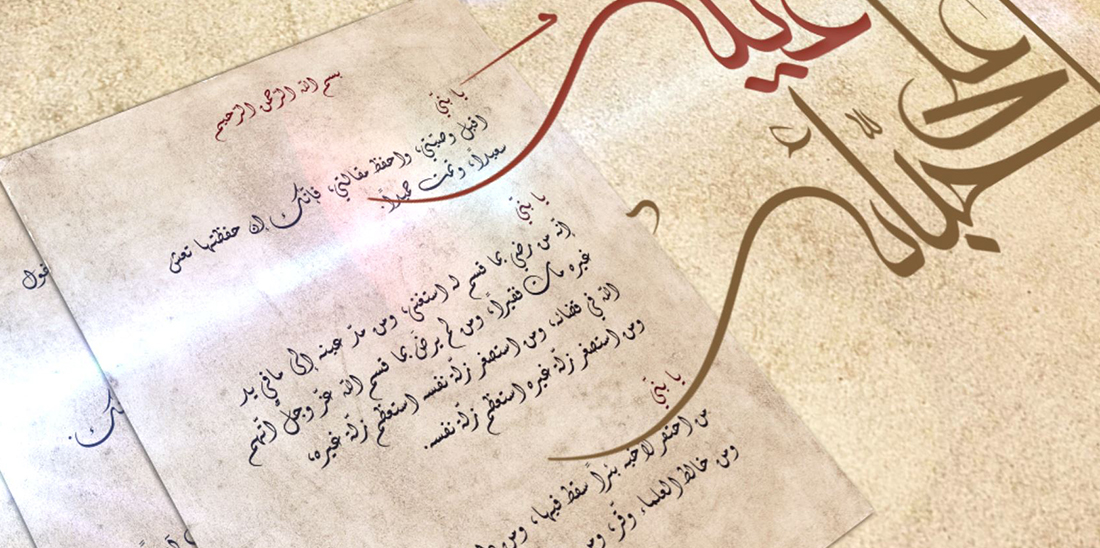 بسم الله الرحمن الرحيم
يا بنيّ
اقبل وصيّتي، واحفظ مقالتي، فإنّك إن حفظتها تعش
سعيداً، وتمت حميداً.
يا بنيّ
إنّه من رضي بما قسم له استغنى، ومن مدّ عينه إلى ما في يد
غيره مات فقيراً، ومن لم يرضَ بما قسم الله عزّ وجلّ اتّهم
الله في قضائه، ومن استصغر زلّة نفسه استعظم زلّة غيره،
ومن استصغر زلّة غيره استعظم زلّة نفسه.
يا بنيّ
من احتفر لأخيه بئراً سقط فيها، ومن
ومن خالط العلماء وقّر، ومن